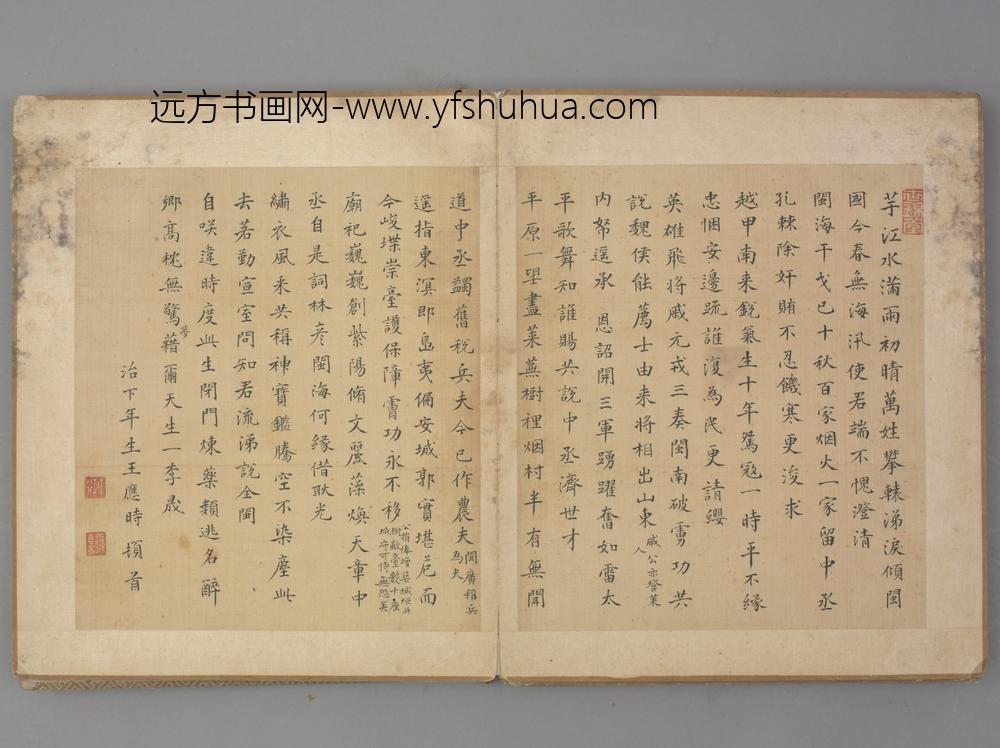 远方书画网-www.yfshuhua.com
芋江水滿雨初晴萬姓攀轅涕淚傾閩
國今春無海汛使君端不愧澄清
閩海干戈已十秋百家烟火一家留中丞
孔棘除奸賄不忍饑寒更浚求
越甲南来銳氣生十年駑寇一時平不緣
忠悃安邊疏誰復為民更請纓
英雄飛將戚元戎三奏閩南破雪功共
說魏侯能薦士由来將相出山東戚公亦登萊
人
内帑遥承 恩詔開三軍踴躍奮如雷太
平歌舞知誰賜共說中丞濟世才
平原一望盡萊蕪樹裡烟村半有無聞
道中丞蠲舊稅兵夫今已作農夫閩廣稱兵
為夫
遥指東溟即島夷備安城郭實堪危而
今峻堞崇臺護保障雪功永不移公捐俸增築城垣并
樹敵臺數十座
城守可恃無恐矣
廟祀巍巍創紫陽脩文麗藻煥天章中
丞自是詞林彦閩海何緣借耿光
繡衣風采共稱神寶鑑騰空不染塵此
去若動宣室問知君流涕說全閩
自咲違時度此生閉門煉藥類逃名醉
鄉髙枕無驚夢藉爾天生一李晟
治下年生王應時頓首